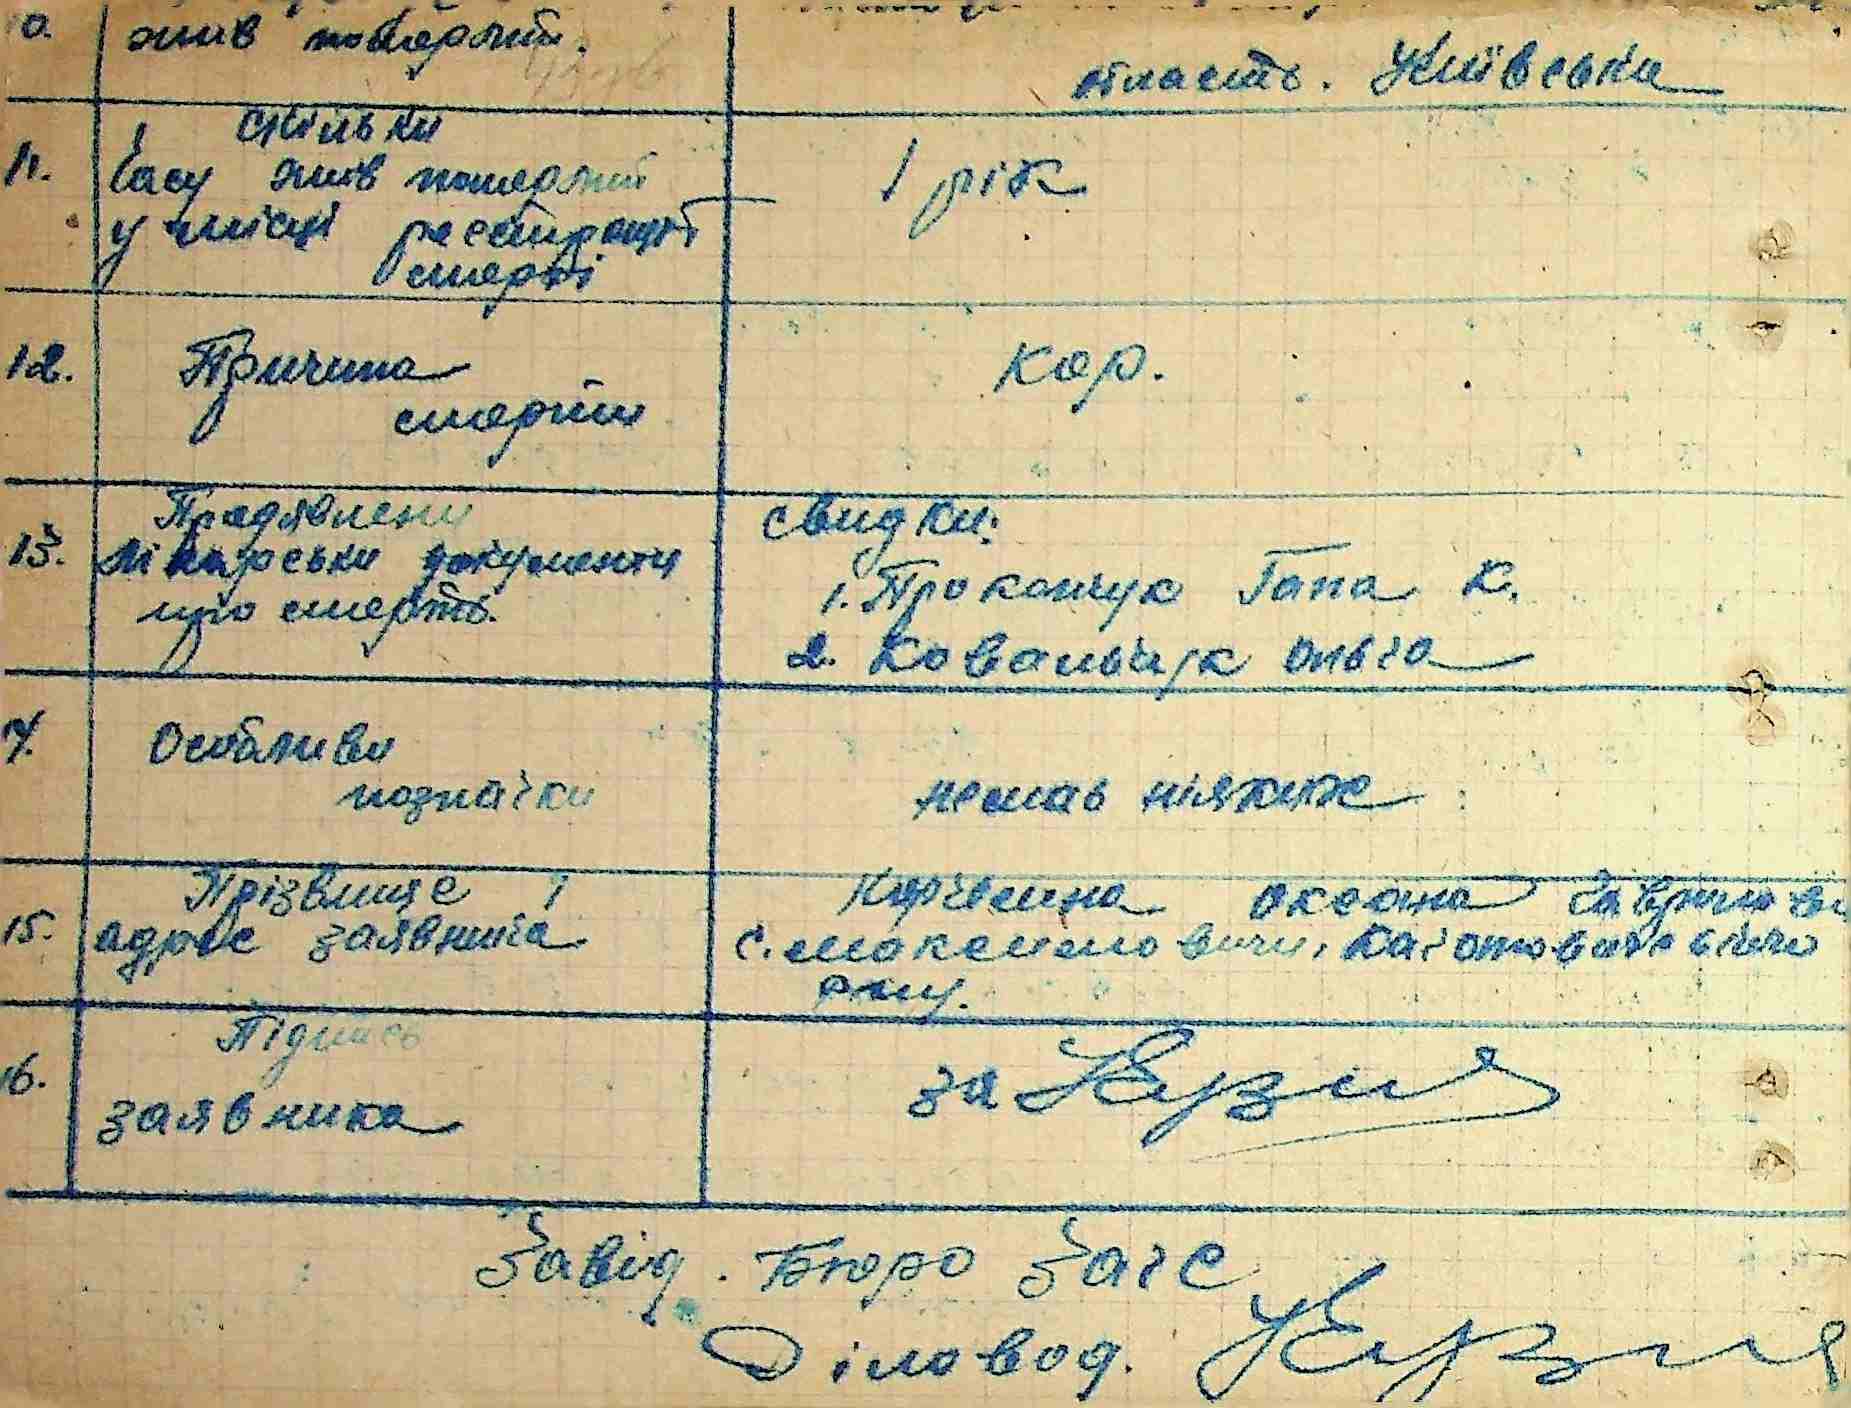 10. жив померлий.
область. Київська
11. Скільки
часу жив померлий
у місці реєстрації
смерті
1 рік
12. Причина
смерти
Кор.
13. Предявлени
лікарськи документи
про смерть.
Свидки:
1. Прокопчук Гапа К.
2. Ковальчук Ольга
Особливи
позначки
немає ніяких
15. Прізвище і
адрес заявника
Оксана
с. Максимовичи, Кагановического
р-ну.
16. Підпись
заявника
за
Завід. Бюро Загс
Діловод.